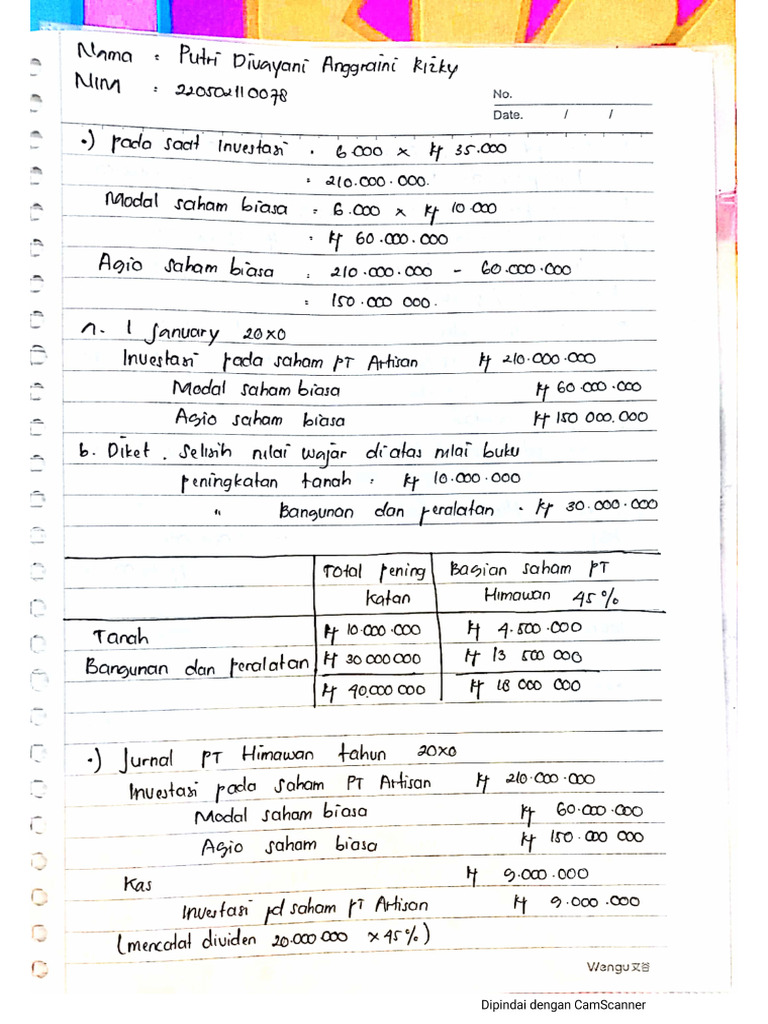 Nama : Putri Divayani Anggraini Rizky
NIM : 220502110078
No.
Date. / /
•) pada saat Investasi . 6.000 x Rp 35.000
: 210.000.000.
Modal saham biasa : 6.000 x Rp 10.000
: Rp 60.000.000
Agio saham biasa : 210.000.000 - 60.000.000
: 150.000 000.
a. 1 January 20X0
Investasi pada saham PT Artisan Rp 210.000.000
Modal saham biasa Rp 60.000.000
Agio saham biasa Rp 150 000.000
b. Diket . Selisih nilai wajar diatas nilai buku
peningkatan tanah : Rp 10.000.000
" Bangunan dan peralatan . Rp 30.000.000
Total pening Bagian saham PT
katan Himawan 45%
Tanah Rp 10.000.000 Rp 4.500.000
Bangunan dan peralatan Rp 30 000 000 Rp 13 500 000
Rp 40.000 000 Rp 18 000 000
•) Jurnal PT Himawan tahun 20X0
Investasi pada saham PT Artisan Rp 210.000.000
Modal saham biasa Rp 60.000.000
Agio saham biasa Rp 150.000 000
Kas Rp 9.000.000
Investasi pd saham PT Artisan Rp 9.000.000
(mencatat dividen 20.000 000 x 45%)
Wengu文谷
Dipindai dengan CamScanner